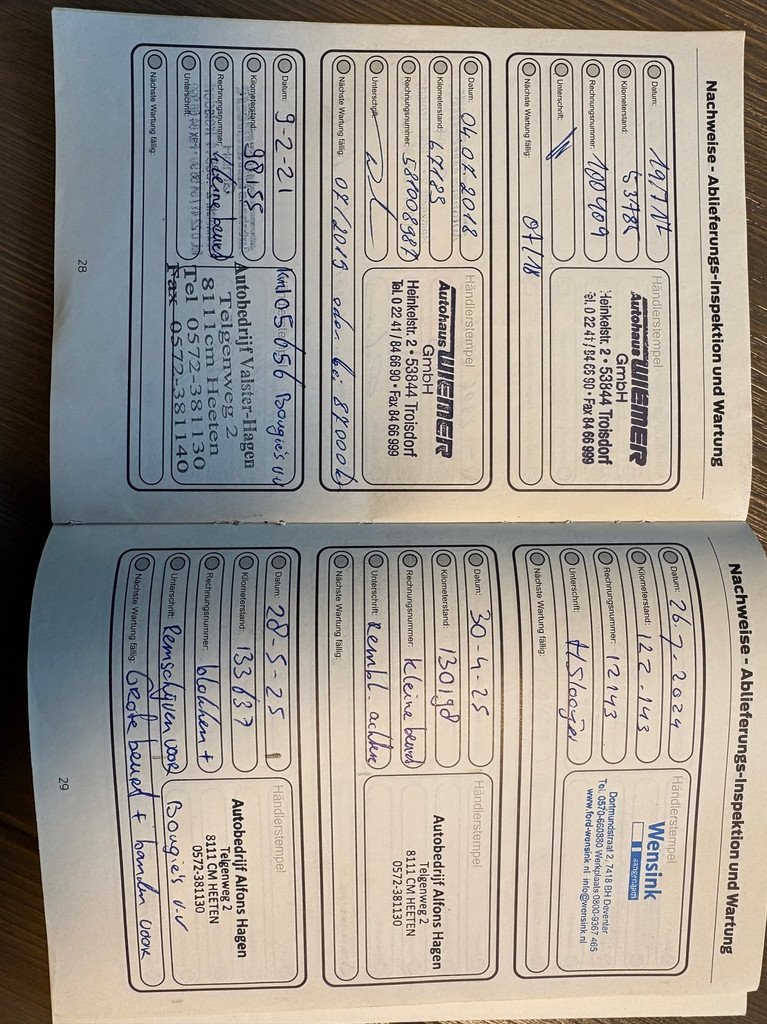 Nachweise - Ablieferungs-Inspektion und Wartung
Datum: 19/7 17
Kilometerstand: 53784
Rechnungsnummer: 100909
Unterschrift:
Nächste Wartung fällig: 07/18
Händlerstempel
Autohaus WIEMER
GmbH
Heinkelstr. 2 • 53844 Troisdorf
Tel. 0 22 41 / 84 66 90 • Fax 84 66 999
Datum: 04.07.2018
Kilometerstand: 67183
Rechnungsnummer:
Unterschrift:
Nächste Wartung fällig: 07/2019 oder bei 87000 km
Händlerstempel
Autohaus WIEMER
GmbH
Heinkelstr. 2 • 53844 Troisdorf
Tel. 0 22 41 / 84 66 90 • Fax 84 66 999
Datum: 9-2-21
Kilometerstand:
Rechnungsnummer: kleine beurt
Unterschrift:
Nächste Wartung fällig:
05/056 Bougie's v-v
Autobedrijf Valster-Hagen
Telgenweg 2
8111cm Heeten
Tel 0572-381130
Fax 0572-381140
28
Nachweise - Ablieferungs-Inspektion und Wartung
Datum: 26.7.2024
Kilometerstand: 122.143
Rechnungsnummer: 12143
Unterschrift:
Nächste Wartung fällig:
Händlerstempel
Wensink
aangenaam
Dortmundstraat 2, 7418 BH Deventer
Tel. 0570-660880 Werkplaats 0800-9367 465
www.ford-wensink.nl info@wensink.nl
Datum: 30-4-25
Kilometerstand: 130198
Rechnungsnummer: kleine beurt
Unterschrift: rembl. achter
Nächste Wartung fällig:
Händlerstempel
Autobedrijf Alfons Hagen
Telgenweg 2
8111 CM HEETEN
0572-381130
Datum: 28-5-25
Kilometerstand: 133637
Rechnungsnummer: blokken +
Unterschrift: Remschijven voor
Nächste Wartung fällig: Grote beurt + banden voor
Händlerstempel
Autobedrijf Alfons Hagen
Telgenweg 2
8111 CM HEETEN
0572-381130
Bougie's v-v
29